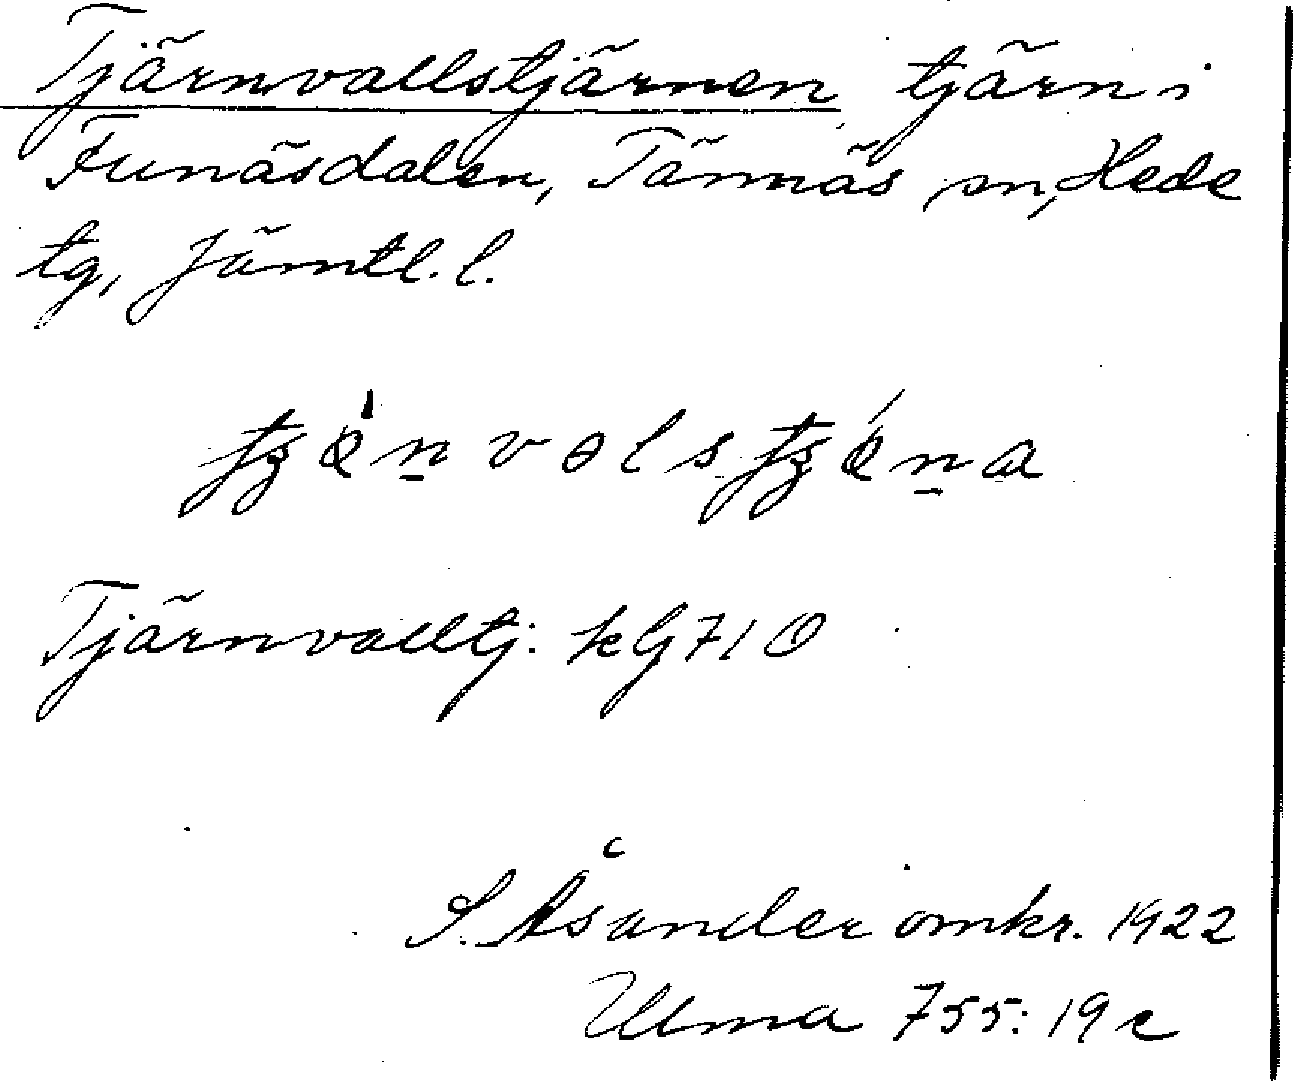 Tjärnvallstjärnen, tjärn i
Funäsdalen, Tännäs sn, Hede
tg, Jämtl. l.
Tjärnvalltj. kG710
S. Åsander omkr. 1922
Ulma 755: 19 c